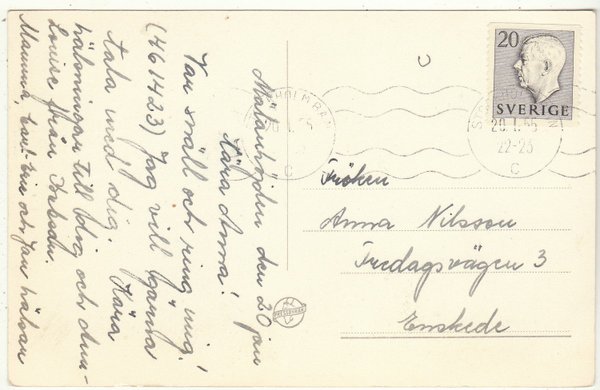 Mälarhöjden den 20 jan
Kära Anna!
Var snäll och ring mig!
(461423) Jag vill gärna
tala med dig. Kära
hälsningar till dig och Ann-
Louise från Babsan.
Mamma, Carl-Erik och Jan hälsar
20
SVERIGE
STOCKHOLM BAN
20.1.55
22-23
C
Fröken
Anna Nilsson
Fredagsvägen 3
Enskede